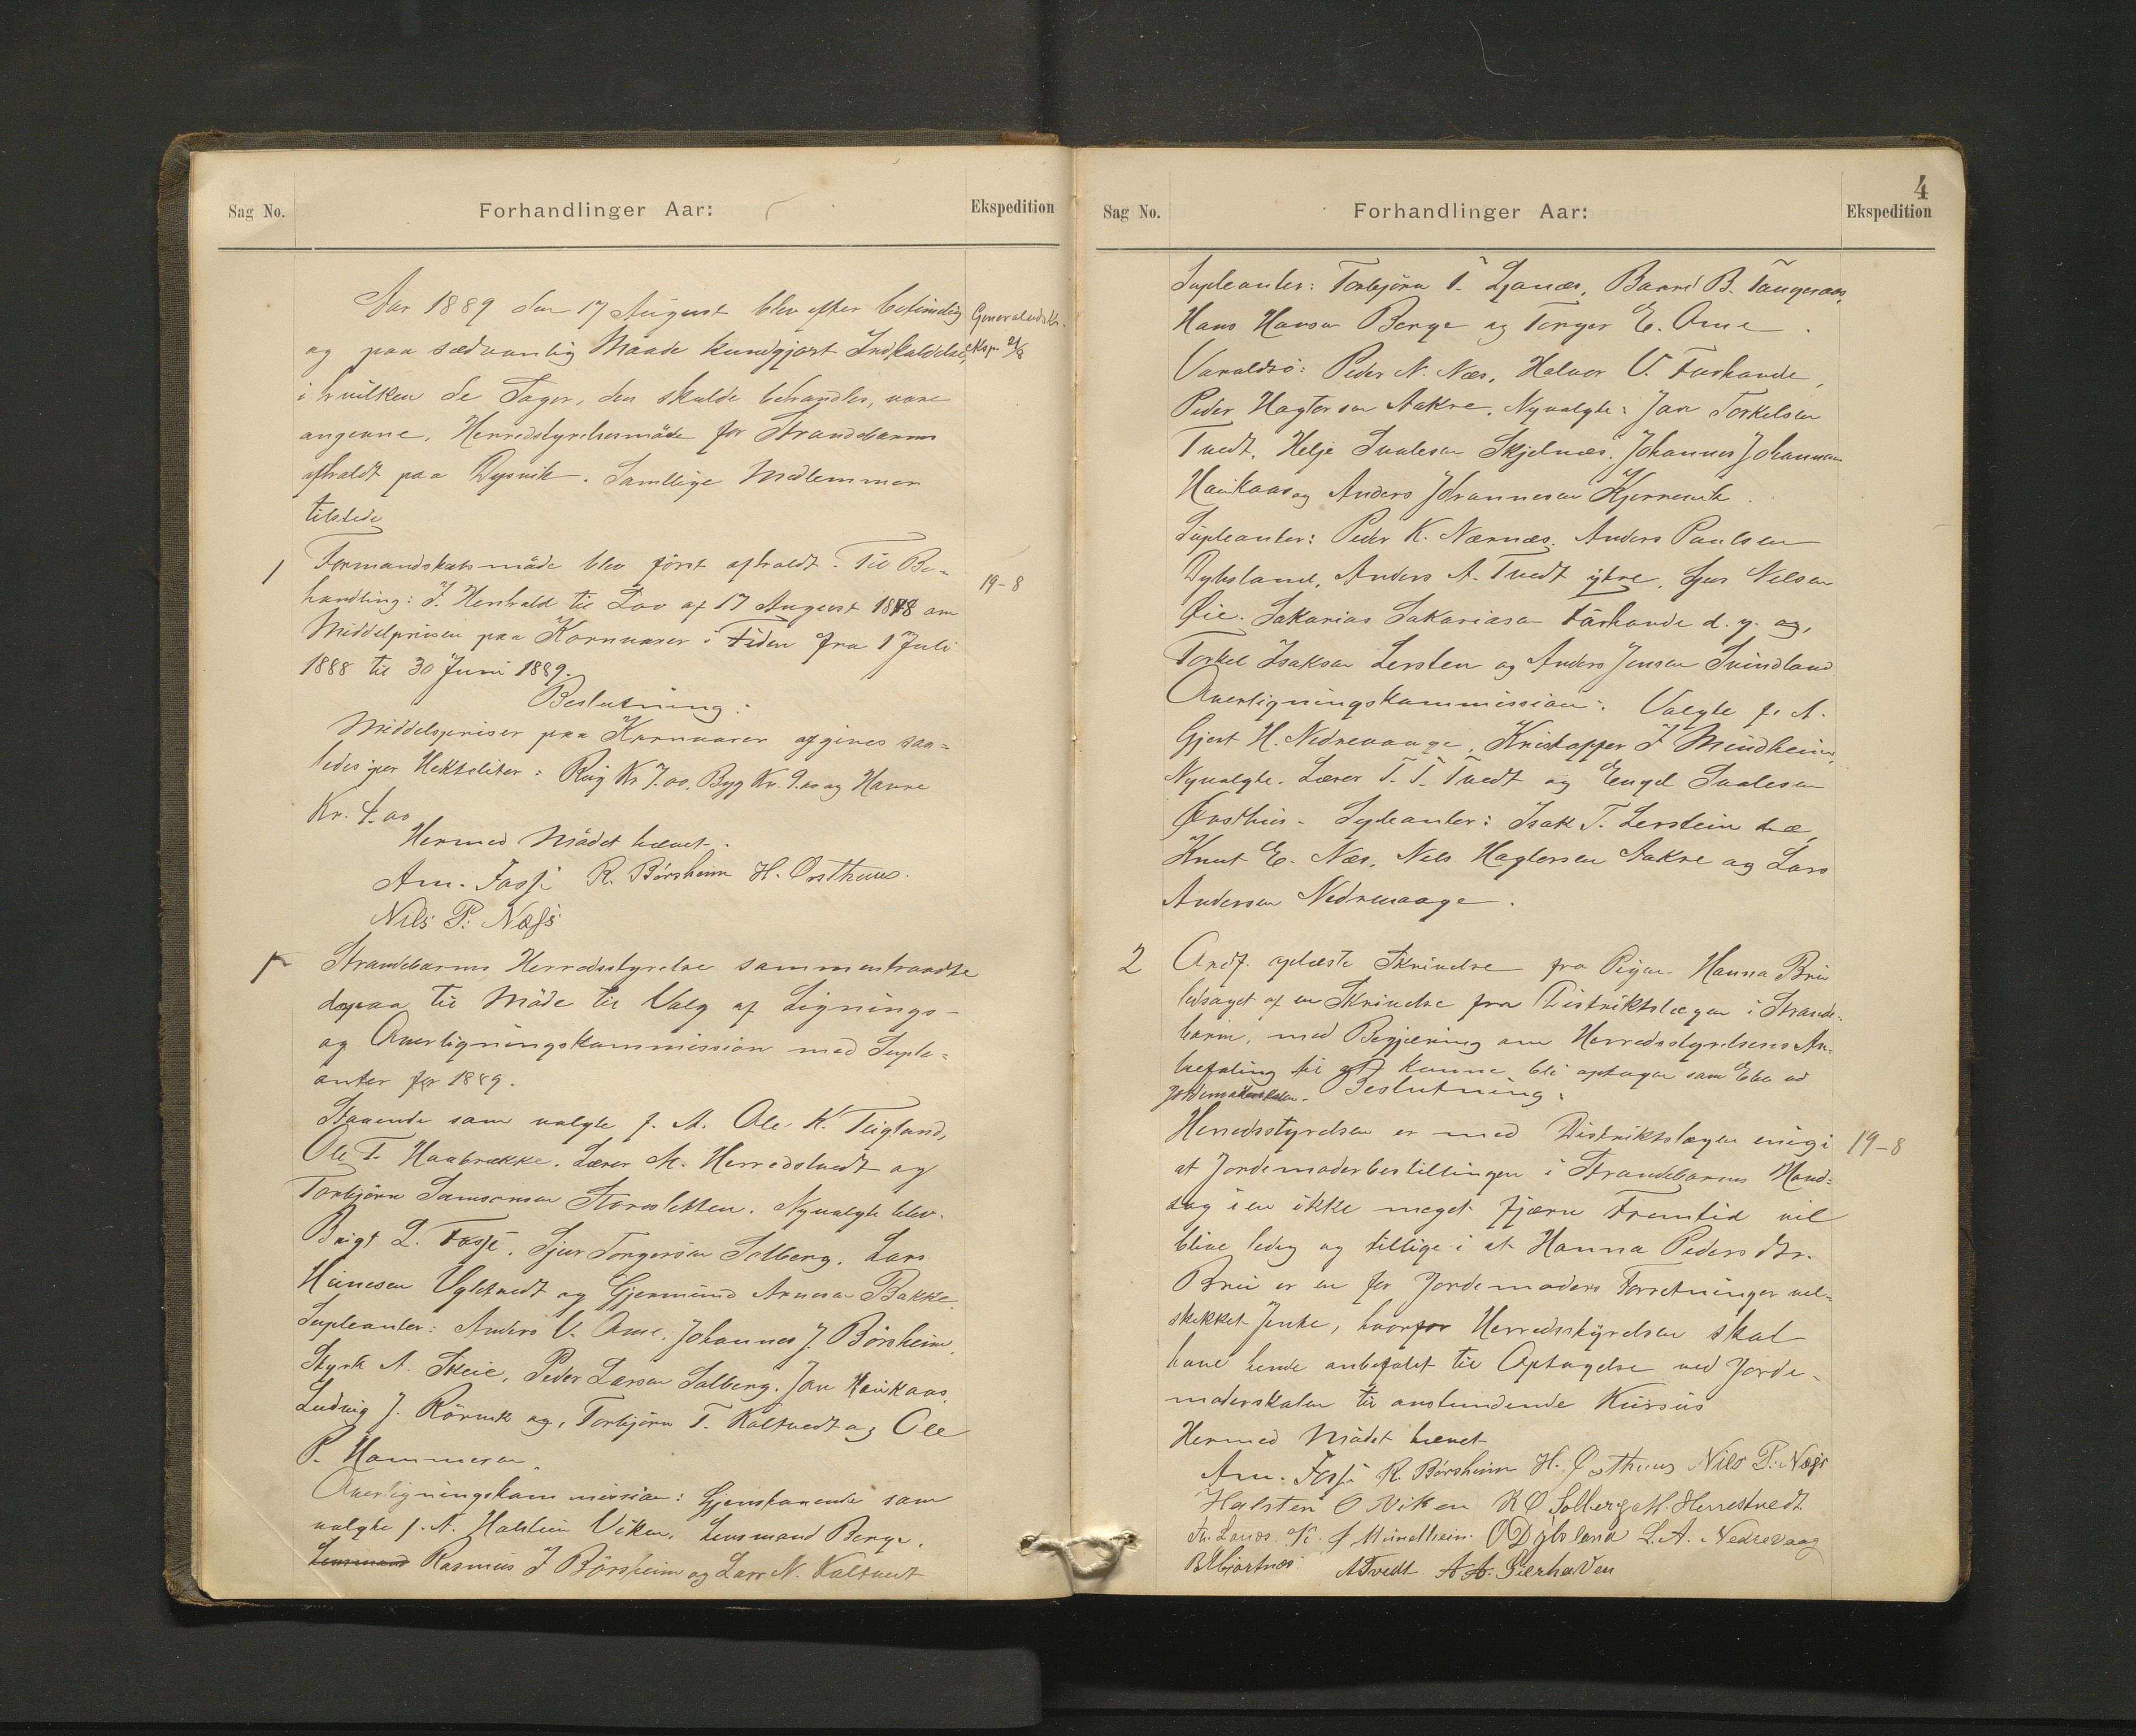 Sag No.
Forhandlinger Aar:
Ekspedition
Aar 1889 den 17 August blev efter betimelig
og paa sædvanlig Maade kundgjort Indkaldelse,
i hvilken de Sager, der skulde behandles, vare
angevne, Herredstyrelsesmöde for Strandebarm
afholdt paa Dysvik. Samtlige Medlemmer
tilstede
Generaludskr.
eksp. 21/8
1
Formandskabsmöde blev först afholdt. Til Be-
handling: I Henhold til Lov af 17 August 1818 om
Middelprisen paa Kornvarer i Tiden fra 1 Juli
1888 til 30 Juni 1889.
19-8
Beslutning:
Middelspriser paa Kornvarer afgives saa=
ledes per Hektoliter: Rug Kr 7.00, Byg Kr. 9.00 og Havre
Kr. 4.00
Hermed Mödet hævet.
Am. Fosse R. Börsheim H. Øvsthuus.
Nils P. Næss
1
Strandebarms Herredsstyrelse sammentraadte
derpaa til Möde til Valg af Lignings-
og Overligningskommission med Suple=
anter for 1889.
Staaende som valgte f. A. Ole K. Teigland,
Ole T. Haabrække. Lærer M. Herredstvedt og
Torbjörn Samsonsen Storesletten. Nyvalgte blev.
Brigt L. Fosse, Sjur Torgersen Solberg, Lars
Heinesen Ygletvedt og Gjermund Arnesen Bakke.
Supleanter: Anders V. Ome, Johannes J. Börsheim,
Styrk A. Skeie, Peder Larsen Solberg, Jon Haukaas,
Ludvig J. Rörvik og, Torbjörn T. Kaltvedt og Ole
P. Hammeren.
Overligningskommission: Gjenstaaende som
valgte f. A. Halstein Viken, Lensmand Berge,
Lensmand Rasmus J Börsheim og Lars N. Kaltvedt
4
Sag No.
Forhandlinger Aar:
Ekspedition
Supleanter: Torbjörn T. Ljonæs, Baard B. Tangeraas,
Hans Hansen Berge og Torger E. Ome.
Varaldsö: Peder N. Næs, Halvor V. Færhavde,
Peder Hagtorsen Aakre. Nyvalgte: Jon Torkelsen
Tvedt, Helje Svalesen Skjelnæs, Johannes Johannesen
Haukaas og Anders Johannesen Kjerrevik.
Supleanter: Peder K. Nærnæs, Anders Paulsen
Dybsland, Anders A. Tvedt ytre, Sjur Nilsen
Öie, Sakarias Sakariasen Færhavde d. y. og,
Torkel Isaksen Lersten og Anders Jensen Svindland
Overligningskommission: Valgte f. A.
Gjert H. Nedrevaage, Kristoffer J Mundheim,
Nyvalgte. Lærer T. T. Tvedt og Engel Svalesen
Øvsthus. Supleanter: Isak T. Lerstein
Knut E. Næs, Nils Hagtorsen Aakre og Lars
Andersen Nedrevaage.
2
Ordf. oplæste Skrivelse fra Pigen Hanna Brei
ledsaget af en Skrivelse fra Distriktslægen i Strande=
barm, med Begjæring om Herredsstyrelsens An-
befaling til at kunne bli optagen som Elev ved
Jordemoderskolen. Beslutning:
Herredsstyrelsen er med Distriktslægen enig i
at Jordemoderbestillingen i Strandebarms Hoved=
sog i en ikke meget fjærn Fremtid vil
blive ledig og tillige i at Hanna Pedersdtr.
Brei er en for Jordemoders Forretninger vel=
skikket Jente, hvorfor Herredsstyrelsen skal
have hende anbefalet til Optagelse ved Jorde-
moderskolen til anstundende Kursus
19-8
Hermed Mödet hævet
Am. Fosse R. Börsheim H. Øvsthuus Nils P. Næss
Halsten O Viken K Ø Solberg M. Herrestvedt
Th. Lonæs. K. J Mundheim. O Dybsland L. A. Nedrevaag
B Mjartnæs A Tvedt A A. Færhavden